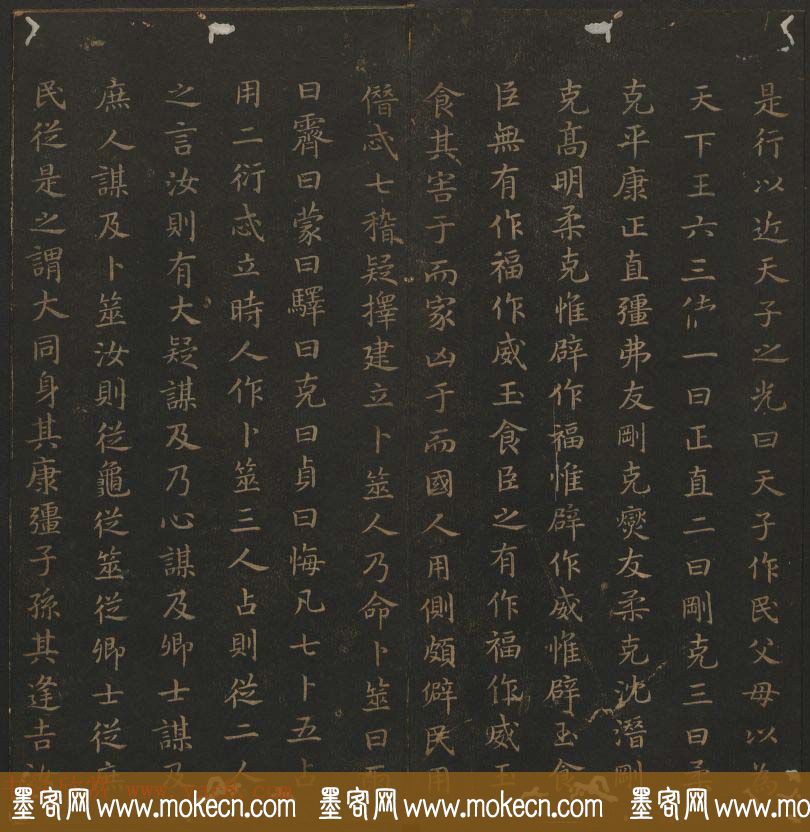 是行以近天子之光曰天子作民父母以為
天下王六三德一曰正直二曰剛克三曰柔
克平康正直彊弗友剛克燮友柔克沈潛剛
克高明柔克惟辟作福惟辟作威惟辟玉食
臣無有作福作威玉食臣之有作福作威玉
食其害于而家凶于而國人用側頗僻民用
僭忒七稽疑擇建立卜筮人乃命卜筮曰雨
曰霽曰蒙曰驛曰克曰貞曰悔凡七卜五占
用二衍忒立時人作卜筮三人占則從二人
之言汝則有大疑謀及乃心謀及卿士謀及
庶人謀及卜筮汝則從龜從筮從卿士從庶
民從是之謂大同身其康彊子孫其逢吉汝
墨客网 www.mokecn.com 墨客网 www.mokecn.com 墨客网 www.mok